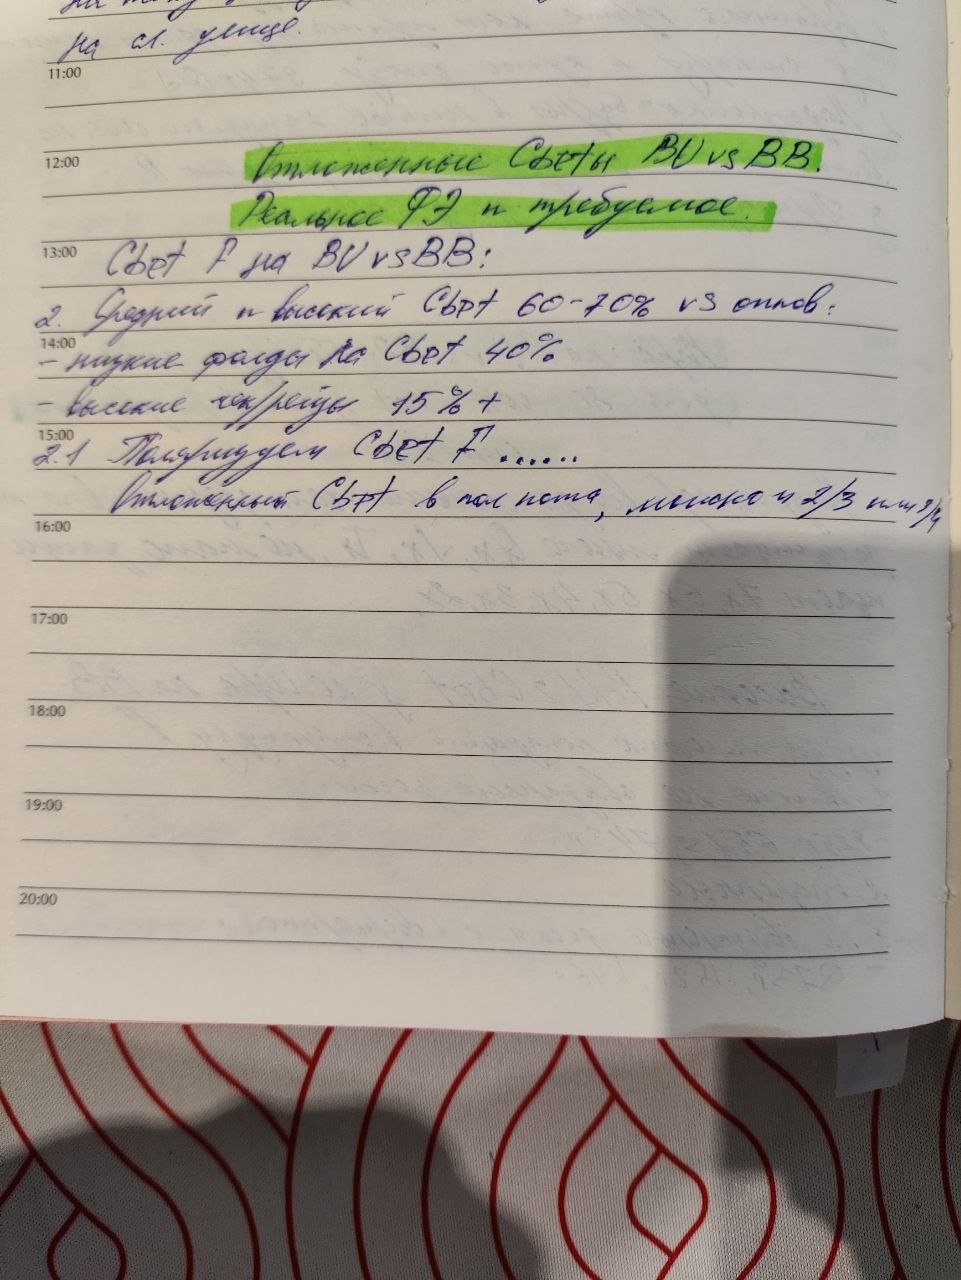 на сл. улице.
11:00
12:00
Отложенные Cbetы BU vs BB.
Реальное ФЭ и требуемое.
13:00
Cbet F на BU vs BB:
2. Средний и высокий Cbet 60-70% vs оппов:
14:00
- низкие фолды на Cbet 40%
- высокие чек/рейзы 15% +
15:00
2.1 Поляризуем Cbet F ......
Отложенный Cbet в пол пота, можно и 2/3 или 3/4
16:00
17:00
18:00
19:00
20:00